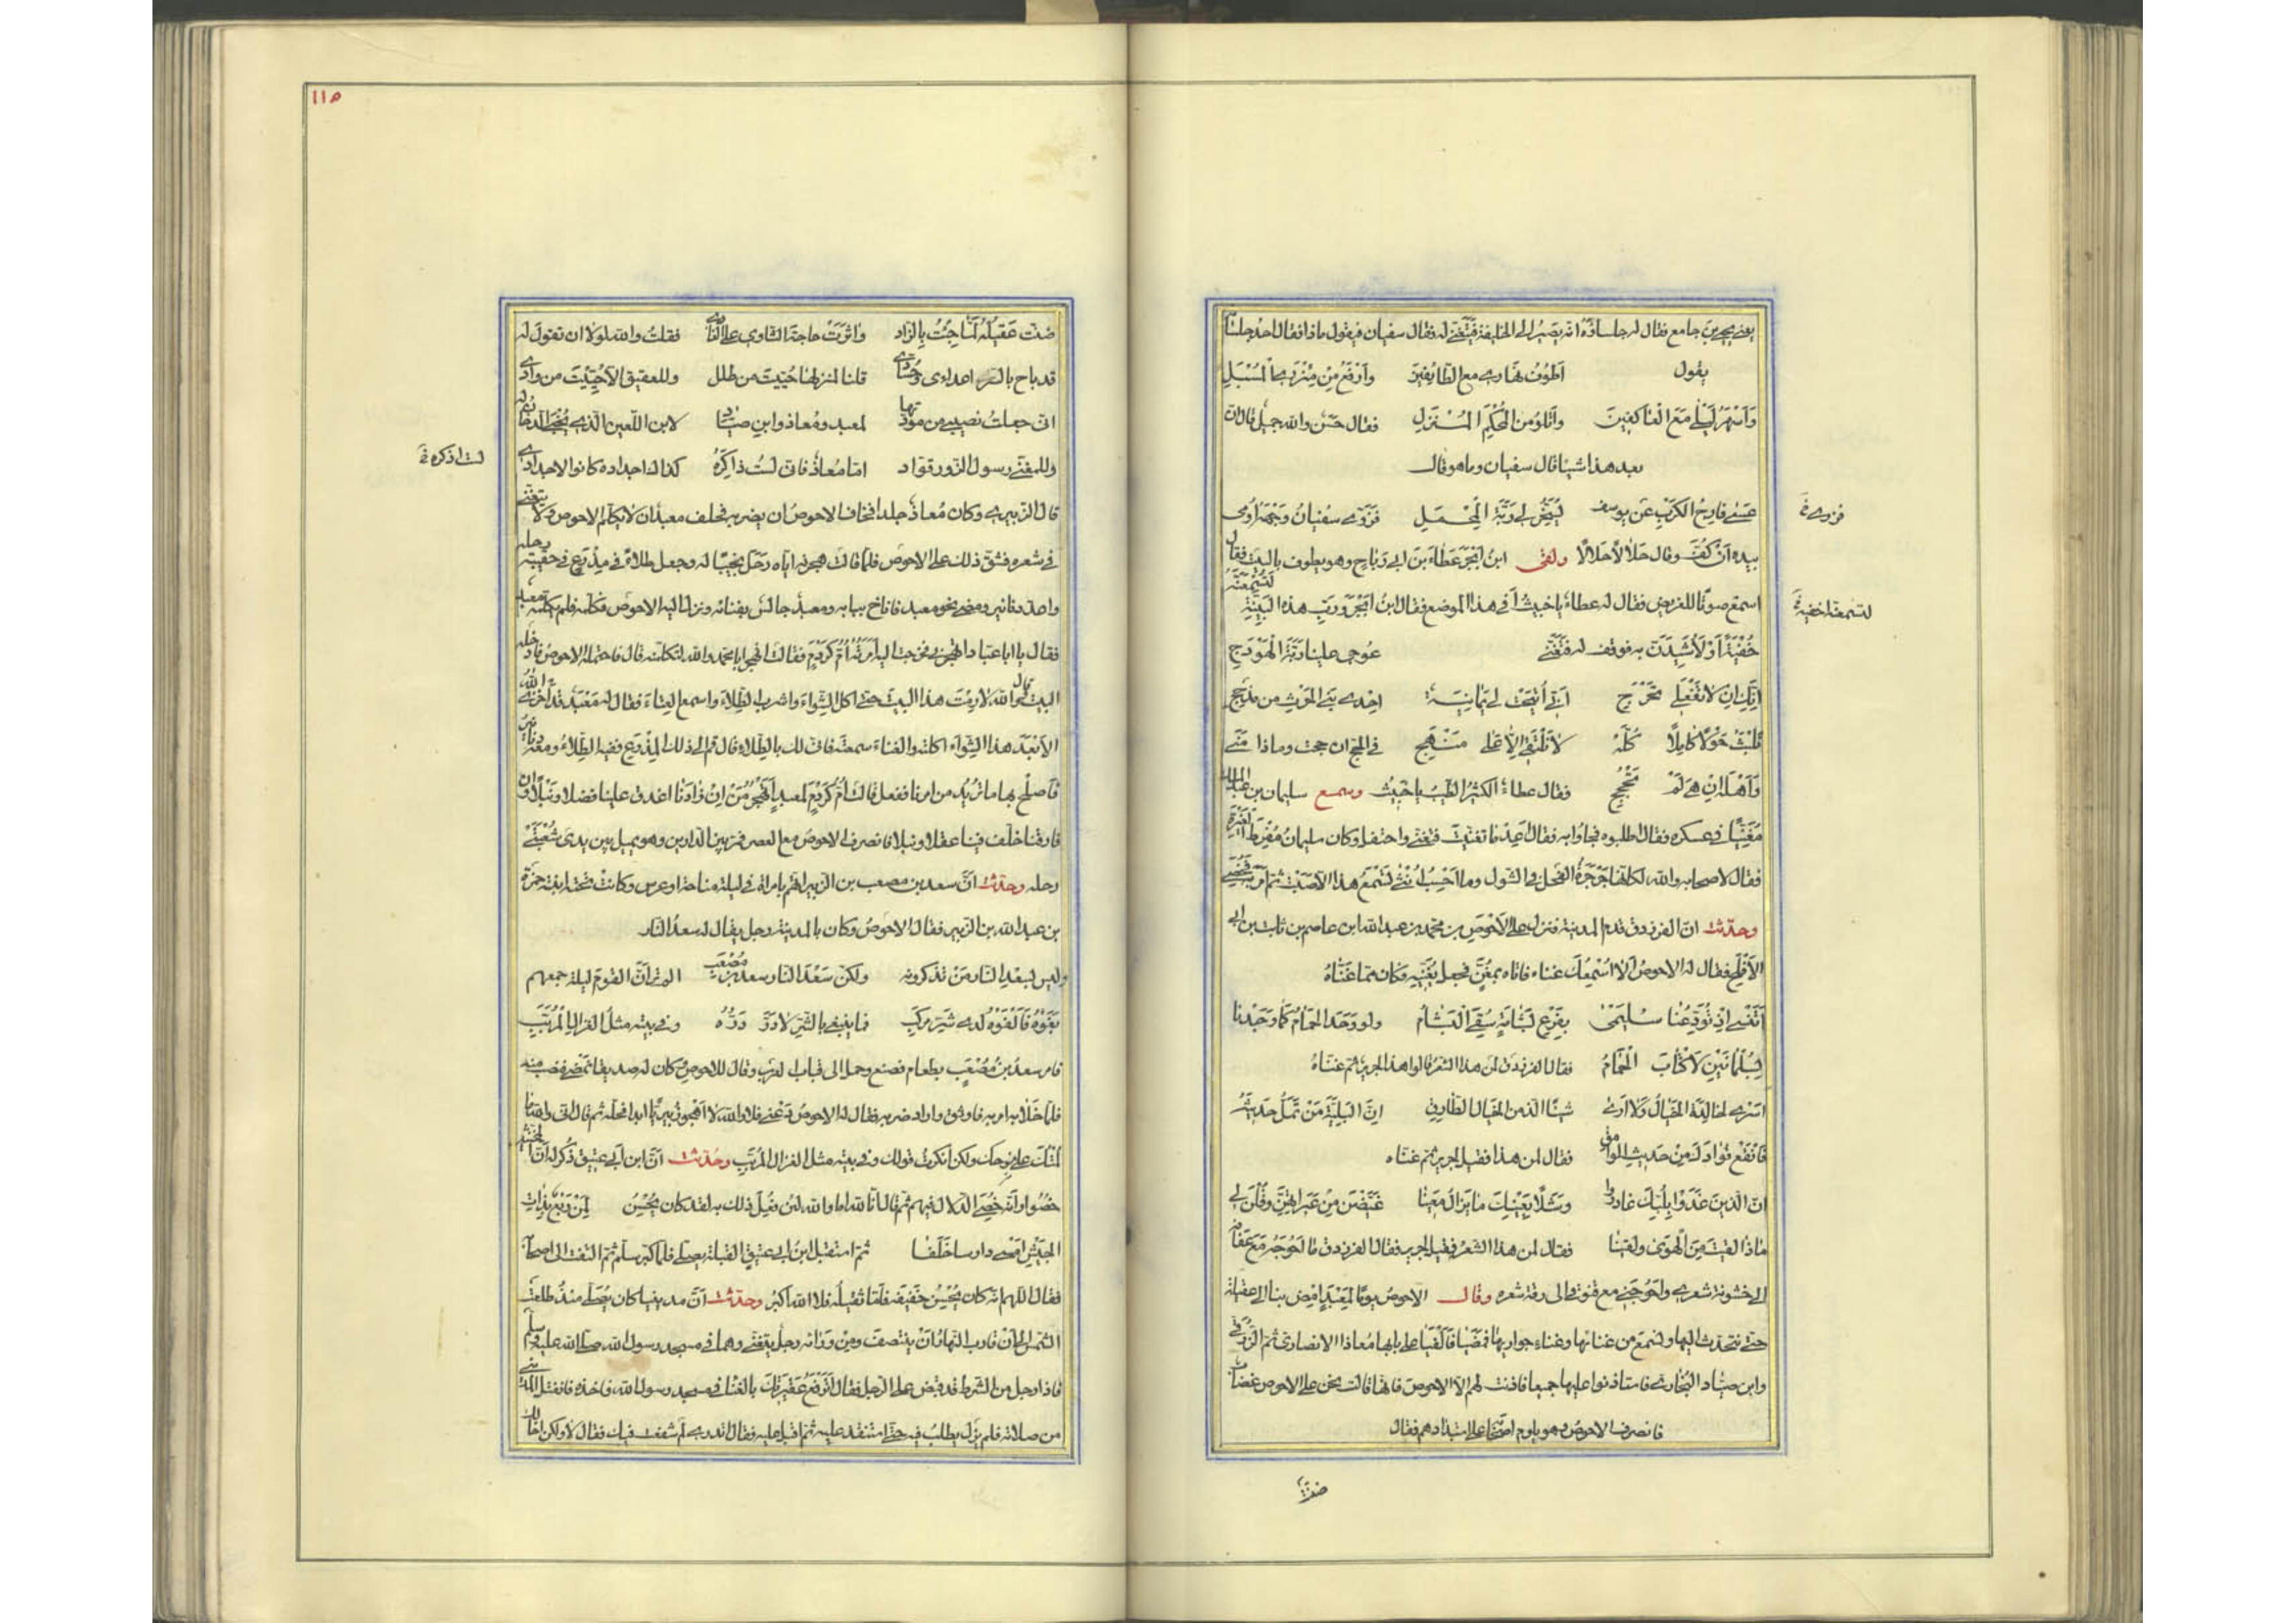 يعنى يحيى بن جامع فقال له جلساؤه انه يصير الى الخليفة فيتغنى له فقال سفيان فيقول ماذا فقال احد جلسائه
يقول اطوف نهارى مع الطائفين وارفع من مئزرى المسبل
واسهر ليلى مع العاكفين واتلو من المحكم المنزل فقال حسن والله جميل قال ان
بعد هذا شيئا قال سفيان وما هو قال
عسى فارج الكرب عن يوسف يسخر لى ربة المحمل فزوى سفيان وجهه واومى
فزوى خ
بيده ان كف وقال حلالا حلالا ولقى ابن ابجر عطاء بن ابى رباح وهو يطوف بالبيت فقال
اسمع صوتا للغريض فقال له عطاء يا خبيث أفى هذا الموضع فقال ابن ابجر ورب هذه البنية لتسمعنه
لتسمعنه خفية خ
خفية او لاشيدن به فوقف له فتغنى عوجى علينا ربة الهودج
انك ان لا تفعلى تحرجى انى أتيحت لى يمانية احدى بنى الحرث من مذحج
نلبث حولا كاملا كله لا نلتقى الا على منهج فى الحج ان حجت وماذا منى
واهله ان هى لم تحجج فقال عطاء الكثير الطيب يا خبيث وسمع سليمان بن عبد الملك
مغنيا فى عسكره فقال اطلبوه فجاؤا به فقال اعد ما تغنيت فتغنى واحتفل وكان سليمان مفرط الغيرة
فقال لاصحابه والله لكانها جرجرة الفحل فى الشول وما احسب انثى تسمع هذا الا صبت ثم امر به فخصى
وحدثت ان الفرزدق قدم المدينة فنزل على الاحوص بن محمد بن عبد الله ابن عاصم بن ثابت بن ابى
الاقلح فقال له الاحوص ألا اسمعك غناء فاتاه بمغن فجعل يغنيه وكان مما غناه
أتنسى اذ تودعنا سليمى بفرع بشامة سقى البشام ولو وجد الحمام كما وجدنا
بسلمانين لاكتأب الحمام فقال الفرزدق لمن هذا الشعر قالوا هذا لجرير ثم غناه
اسرى لخالدة الخيال ولا ارى شيئا الذ من الخيال الطارق ان البلية من تمل حديثه
فانقع فؤادك من حديث الوامق فقال لمن هذا فقيل لجرير ثم غناه
ان الذين غدوا بلبك غادروا وشلا بعينك ما يزال معينا غيضن من عبراتهن وقلن لى
ماذا لقيت من الهوى ولقينا فقال لمن هذا الشعر فقيل لجرير فقال الفرزدق ما احوجه مع عفافه
الى خشونة شعرى واحوجنى مع فسوقى الى رقة شعره وقال الاحوص يوما لمعبد امض بنا الى عقيلة
حتى نتحدث اليها ونسمع من غنائها وغناء جواريها فمضيا فالفيا على بابها معاذا الانصارى ثم الزرقى
وابن صياد النجارى فاستاذنوا عليها جميعا فاذنت لهم الا الاحوص فانها قالت نحن على الاحوص غضاب
فانصرف الاحوص وهو يلوم اصحابه على استبدادهم فقال
ضنت
١١٥
ضنت عقيلة لما جئت بالزاد واثرت حاجة الثاوى على الغادى فقلت والله لولا ان تقول له
قد باح بالسر اعداءى وحسادى قلنا لمنزلها حييت من طلل وللعقيق الا حييت من وادى
انى جعلت نصيبى من مودتها لمعبد ومعاذ وابن صياد لابن اللعين الذى يخبى الدخان له
وللمغنى رسول الزور قواد اما معاذ فانى لست ذاكره كذاك اجداده كانوا لاجدادى
لست اذكره خ
قال الزبيرى وكان معاذ جلدا فخاف الاحوص ان يضربه فحلف معبد ان لا يكلم الاحوص ولا يتغنى
فى شعره فشق ذلك على الاحوص فلما طالت هجرته اياه رحل نجيبا له وجعل طلاء فى مذرع فى حقيبة رحله
واعد دنانير ومضى نحو معبد فاناخ ببابه ومعبد جالس بفنائه ونزل اليه الاحوص فكلمه فلم يكلمه معبد
فقال يا ابا عباد اتهجرنى فخرجت اليه امراته ام كردم فقالت اتهجر ابا محمد والله لتكلمنه قال فاحتمله الاحوص فادخله
البيت وقال والله لا رمت هذا البيت حتى اكل الشواء واشرب الطلاء واسمع الغناء فقال له معبد قد اخزى الله
الابعد هذا الشواء اكلته والغناء سمعته فانى لك بالطلاء قال قم الى ذلك المذرع ففيه الطلاء ومعه دنانير
فاصلح بها ما تريد من امرنا ففعل قالت ام كردم لمعبد أتهجر من ان زارنا اغدق علينا فضلا ونيلا وان
فارقنا خلف فينا عقلا ونبلا فانصرف الاحوص مع العصر فمر بين الدارين وهو يميل بين يدى شعبتى
رحله وحدثت ان سعد بن مصعب بن الزبير اتهم بامراة فى ليلة مناحة او عرس وكانت تحته ابنة حمزة
بن عبد الله بن الزبير فقال الاحوص وكان بالمدينة رجل يقال له سعد النار
وليس لسعد النار من تذكرونه ولكن سعد النار سعد بن مصعب الم تر ان القوم ليلة جمعهم
بغوه فالفوه لدى شر مركب فما يبتغى بالشر لا در دره وفى بيته مثل الغزال المربب
فامر سعد بن مصعب بطعام فصنع وحمل الى قباب العرب وقال للاحوص وكان له صديقا تمضى فنصيب منه
فلما خلا به امر به فاوثق واراد ضربه فقال له الاحوص دعنى فلا والله لا اهجو زبيريا ابدا فحله ثم قال انى والله ما
لمتك على مزحك ولكن انكرت قولك وفى بيته مثل الغزال المربب وحدثت ان ابن ابى عتيق ذكر له ان المخنثين
خصوا وانه خصى الدلال فيهم ثم قال انا لله اما والله لئن فعل ذلك به لقد كان يحسن لمن ربع بذات
الجيش امسى دارسا خلقا ثم استقبل ابن ابى عتيق القبلة يصلى فلما كبر سلم ثم التفت الى اصحابه
فقال اللهم انه كان يحسن خفيفه فاما ثقيله فلا الله اكبر وحدثت ان مدينيا كان يصلى منذ طلعت
الشمس الى ان قارب النهار ان ينتصف ومن ورائه رجل يتغنى وهما فى مسجد رسول الله صلى الله عليه وسلم
فاذا رجل من الشرط قد قبض على الرجل فقال اترفع عقيرتك بالغنا فى مسجد رسول الله فاخذه فانفتل المدينى
من صلاته فلم يزل يطلب فيه حتى استنقذه عليه ثم اقبل عليه فقال اتدرى لم شفعت فيك فقال لا ولكن اخالك